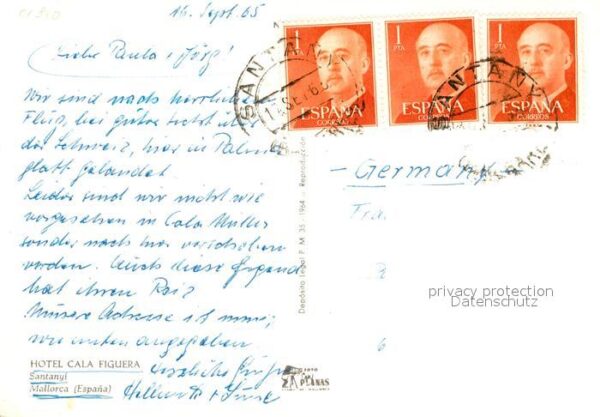 16. Sept. 65
Liebe Paula + Jörg!
Wir sind nach herrlichem
Flug, bei guter Sicht über
die Schweiz, hier in Palma
glatt gelandet.
Leider sind wir nicht wie
vorgesehen in Cala Millor
sondern nach hier verschoben
worden. Auch diese Gegend
hat ihren Reiz
Unsere Adresse ist nun,
wie unten angegeben.
Herzliche Grüße
HOTEL CALA FIGUERA
Santanyí
Mallorca (España)
1 PTA
ESPAÑA
CORREOS
1 PTA
ESPAÑA
CORREOS
1 PTA
ESPAÑA
CORREOS
SANTANY
SANTANY
Depósito Legal P. M. 35 - 1964
Reproducción
PLANAS
- Germany -
Fra.
privacy protection
Datenschutz